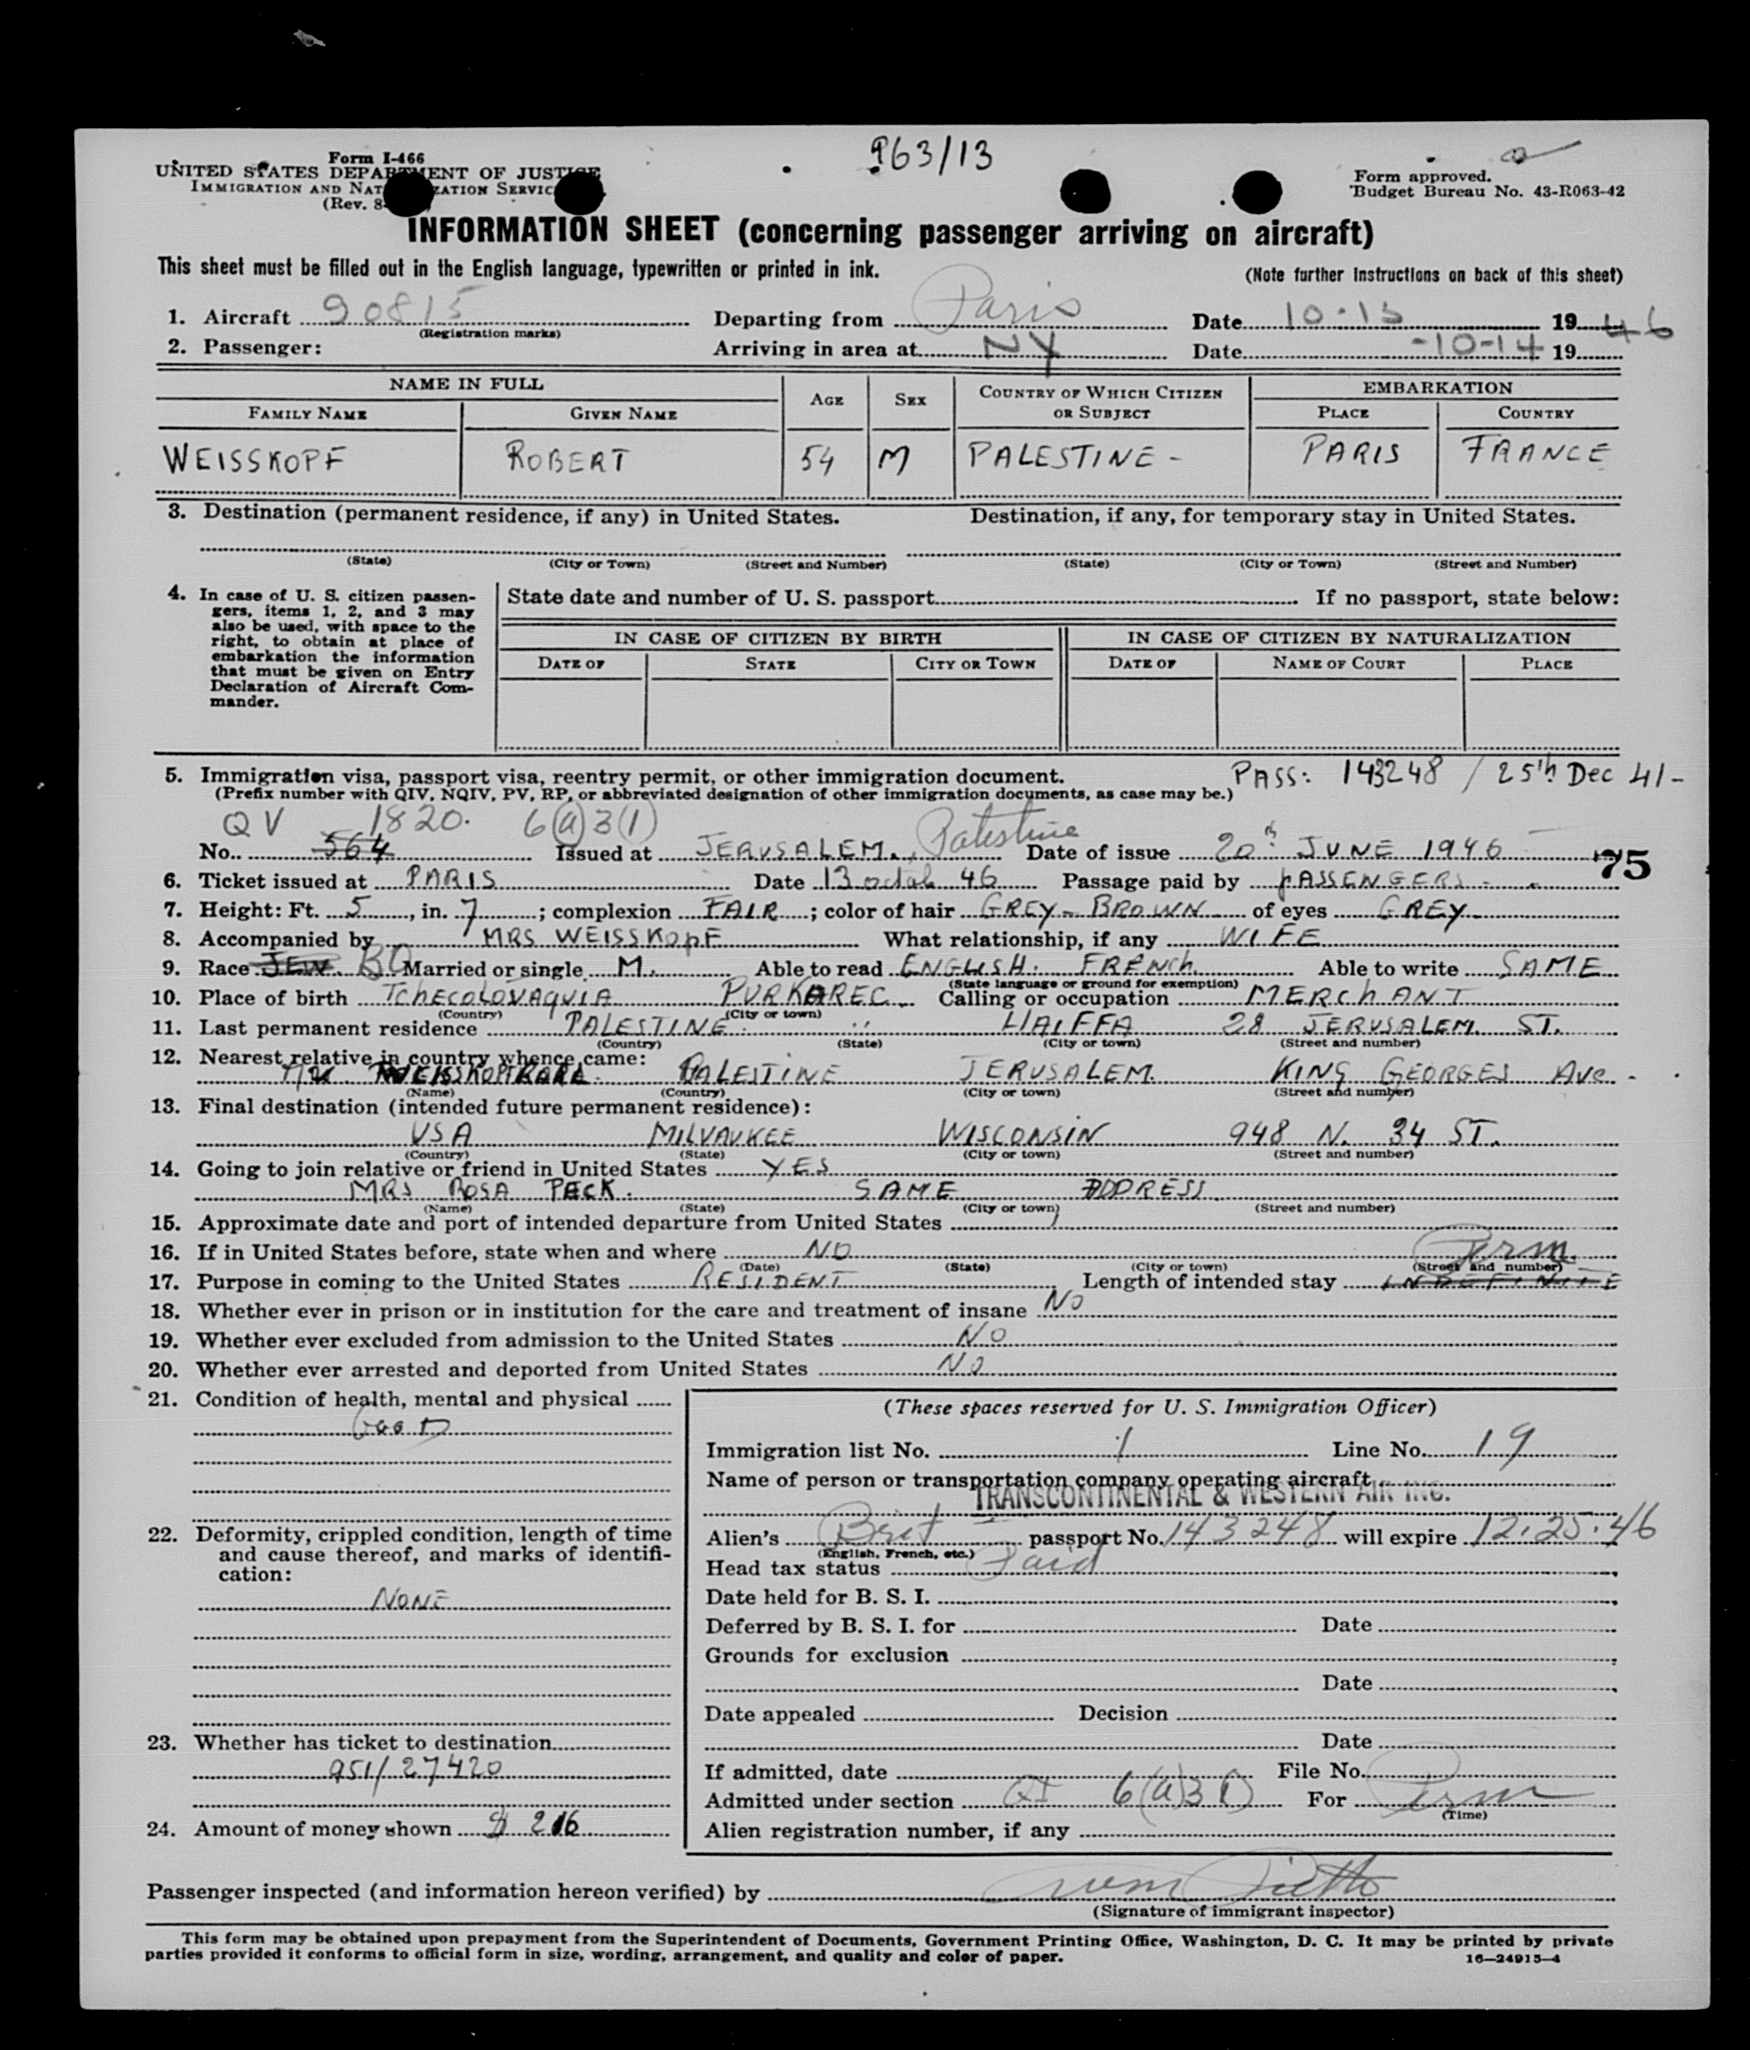 963/13
Form I-466
UNITED STATES DEPARTMENT OF JUSTICE
IMMIGRATION AND NATURALIZATION SERVICE
(Rev. 8-
Form approved.
Budget Bureau No. 43-R063-42
INFORMATION SHEET (concerning passenger arriving on aircraft)
This sheet must be filled out in the English language, typewritten or printed in ink.
(Note further instructions on back of this sheet)
1. Aircraft 90815 Departing from Paris Date 10-13 1946
(Registration marks)
2. Passenger: Arriving in area at NY Date -10-14 19
NAME IN FULL AGE SEX COUNTRY OF WHICH CITIZEN OR SUBJECT EMBARKATION
FAMILY NAME GIVEN NAME PLACE COUNTRY
WEISSKOPF ROBERT 54 M PALESTINE - PARIS FRANCE
3. Destination (permanent residence, if any) in United States. Destination, if any, for temporary stay in United States.
(State) (City or Town) (Street and Number) (State) (City or Town) (Street and Number)
4. In case of U. S. citizen passen-
gers, items 1, 2, and 3 may
also be used, with space to the
right, to obtain at place of
embarkation the information
that must be given on Entry
Declaration of Aircraft Com-
mander.
State date and number of U. S. passport If no passport, state below:
IN CASE OF CITIZEN BY BIRTH IN CASE OF CITIZEN BY NATURALIZATION
DATE OF STATE CITY OR TOWN DATE OF NAME OF COURT PLACE
5. Immigration visa, passport visa, reentry permit, or other immigration document. PASS: 143248 / 25th Dec 41-
(Prefix number with QIV, NQIV, PV, RP, or abbreviated designation of other immigration documents, as case may be.)
QV 1820. 6(a)3(1) Palestine
No. 564 Issued at JERUSALEM. Date of issue 20th JUNE 1946
75
6. Ticket issued at PARIS Date 13 octob 46 Passage paid by PASSENGERS -
7. Height: Ft. 5, in. 7; complexion FAIR; color of hair GREY-BROWN of eyes GREY
8. Accompanied by MRS WEISSKOPF What relationship, if any WIFE
9. Race JEW. BO Married or single M. Able to read ENGLISH. FRENCH. Able to write SAME
(State language or ground for exemption)
10. Place of birth TCHECOLOVAQUIA PURKAREC Calling or occupation MERCHANT
(Country) (City or town)
11. Last permanent residence PALESTINE HAIFFA 28 JERUSALEM ST.
(Country) (State) (City or town) (Street and number)
12. Nearest relative in country whence came:
PALESTINE JERUSALEM. KING GEORGES Ave.
(Name) (Country) (City or town) (Street and number)
13. Final destination (intended future permanent residence):
USA MILVAUKEE WISCONSIN 948 N. 34 ST.
(Country) (State) (City or town) (Street and number)
14. Going to join relative or friend in United States YES
MRS ROSA PECK. SAME ADDRESS
(Name) (State) (City or town) (Street and number)
15. Approximate date and port of intended departure from United States
16. If in United States before, state when and where NO
(Date) (State) (City or town) (Street and number)
Perm.
17. Purpose in coming to the United States RESIDENT Length of intended stay INDEFINITE
18. Whether ever in prison or in institution for the care and treatment of insane NO
19. Whether ever excluded from admission to the United States NO
20. Whether ever arrested and deported from United States NO
21. Condition of health, mental and physical
GOOD
22. Deformity, crippled condition, length of time
and cause thereof, and marks of identifi-
cation:
NONE
23. Whether has ticket to destination
951/27420
24. Amount of money shown $ 216
(These spaces reserved for U. S. Immigration Officer)
Immigration list No. 1 Line No. 19
Name of person or transportation company operating aircraft
TRANSCONTINENTAL & WESTERN AIR INC.
Alien's Brit passport No. 143248 will expire 12.25.46
(English, French, etc.)
Head tax status Paid
Date held for B. S. I.
Deferred by B. S. I. for Date
Grounds for exclusion
Date
Date appealed Decision
Date
If admitted, date File No.
Admitted under section QI 6(a)3(1) For Perm
(Time)
Alien registration number, if any
Passenger inspected (and information hereon verified) by
(Signature of immigrant inspector)
This form may be obtained upon prepayment from the Superintendent of Documents, Government Printing Office, Washington, D. C. It may be printed by private
parties provided it conforms to official form in size, wording, arrangement, and quality and color of paper.
16—24915-4